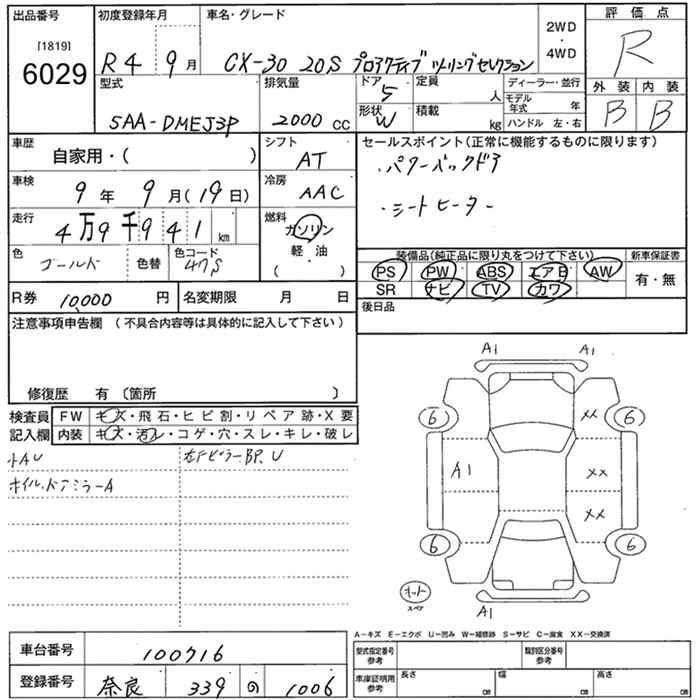 出品番号
[1819]
6029
初度登録年月
R4 9月
車名・グレード
CX-30 20S プロアクティブ ツーリングセレクション
2WD
・
4WD
評価点
R
外装 内装
B B
型式
5AA-DMEJ3P
排気量
2000 cc
ドア
5
形状
W
定員
人
積載
kg
ディーラー・並行
モデル年式 年
ハンドル 左・右
車歴
自家用・( )
シフト
AT
車検
9年 9月(19日)
冷房
AAC
走行
4万9千941km
燃料
ガソリン
軽・油
( )
色
ゴールド
色替
色コード
47S
セールスポイント(正常に機能するものに限ります)
・パワーバックドア
・シートヒーター
装備品(純正品に限り丸をつけて下さい)
PS PW ABS エアB AW
SR ナビ TV カワ
新車保証書
有・無
R券 10,000 円
名変期限 月 日
後日品
注意事項申告欄 (不具合内容等は具体的に記入して下さい)
修復歴 有 〔箇所 〕
検査員記入欄
FW キズ・飛石・ヒビ割・リペア跡・X要
内装 キズ・汚レ・コゲ・穴・スレ・キレ・破レ
小AU
ホイル、ドアミラーA
右Fピラー BP、U
A1 A1
6 XX 6
A1 XX
XX
6 6
ホット
スペア
A1
A-キズ E-エクボ U-凹み W-補修跡 S-サビ C-腐食 XX-交換済
車台番号
100716
登録番号
奈良 339 の 1006
型式指定番号 参考
類別区分番号 参考
車庫証明用 参考
長さ cm
幅 cm
高さ cm